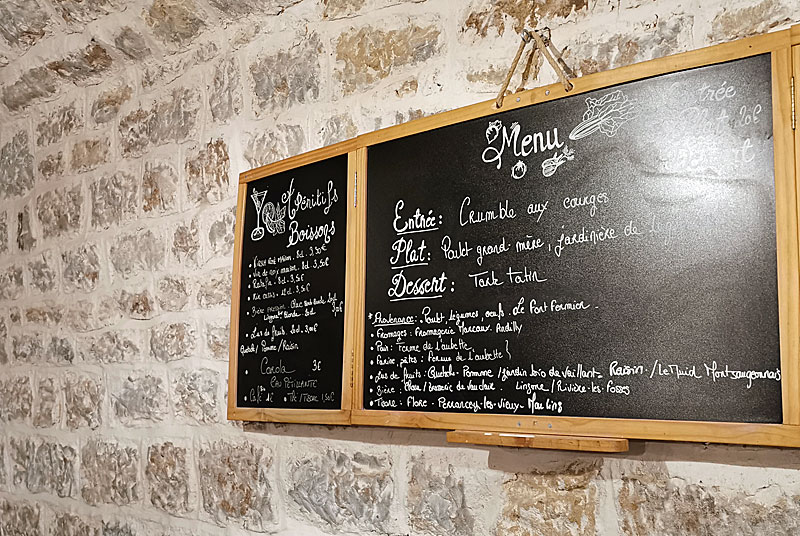 Apéritifs
Boissons
8cl. 3,50€
Vin de 8cl. 3,50€
Ratafia. 8cl. 3,50€
Kir cassis. 12cl. 3,50€
Bière
Blonde. 3,00€
Jus de fruits. 3,00€
Quetsche / Pomme / Raisin
Carola 3€
EAU PÉTILLANTE
Café 1€ Thé / Tisane 1,50€
Menu
Entrée: Crumble aux courges
Plat: Poulet grand mère, jardinière de
Dessert: Tarte tatin
* Provenance: Poulet, légumes, oeufs. Le Pont Fermier.
• Fromages: Fromagerie Marcaux Andilly
• Pain: Ferme de l'aubette
• Farine, pâtes: Ferme de l'aubette
• Jus de fruits: Quetsche. Pomme / Jardin bio de vaillant. Raisin / Le Muid Montsaugeonnais
• Bière: / brasserie de vauclair. Lingone / Rivière-les-fosses
• Tisane: Flore. Perrancey-les-Vieux-Moulins